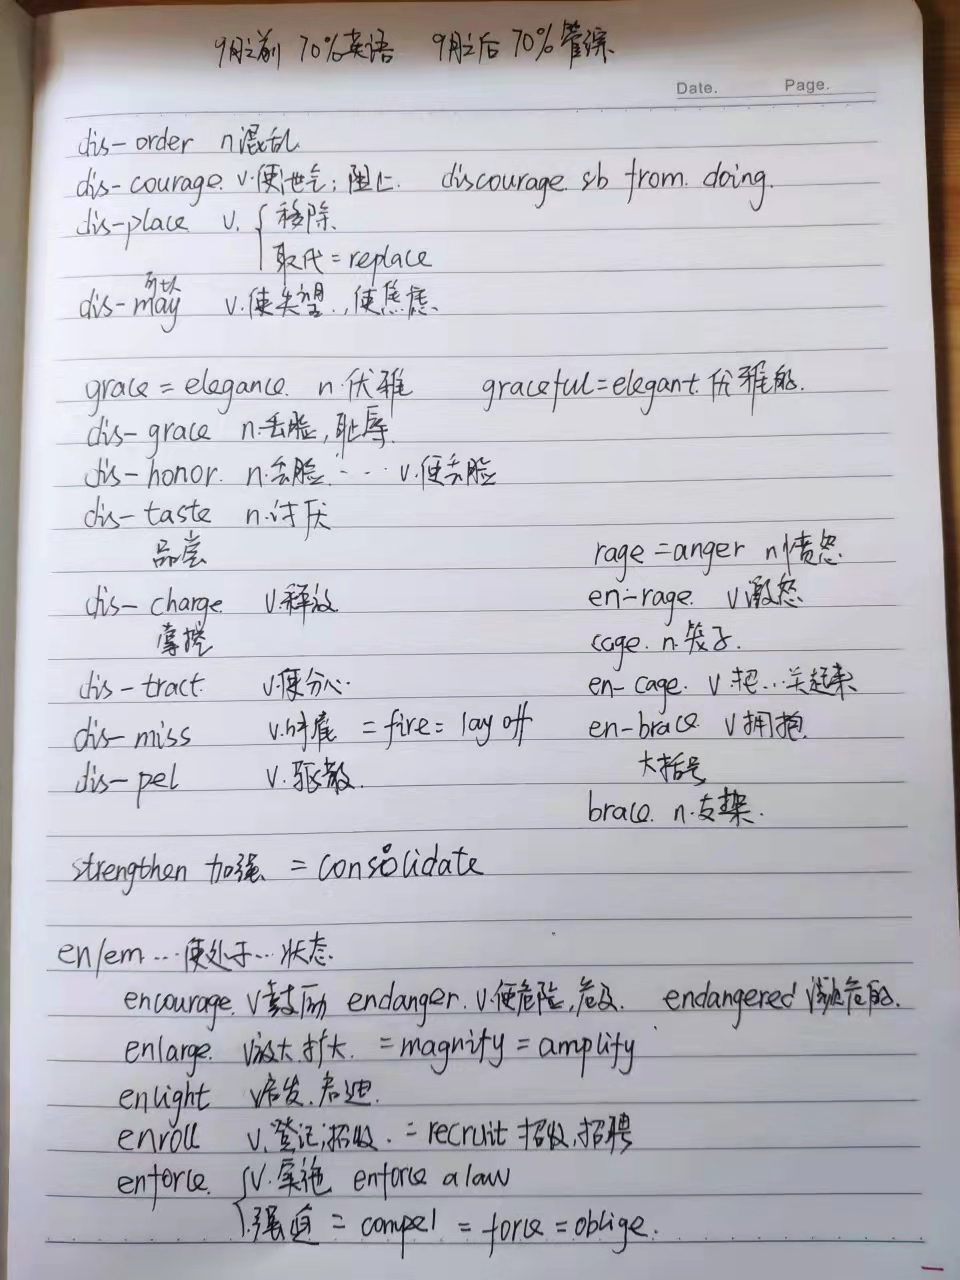 9月之前 70%英语 9月之后 70%管综
Date. Page.
dis-order n混乱
dis-courage. v.使泄气;阻止. discourage sb from doing.
dis-place v. { 移除.
取代=replace
可以
dis-may v.使失望,使焦虑.
grace=elegance. n.优雅 graceful=elegant.优雅的.
dis-grace n.丢脸,耻辱.
dis-honor. n.丢脸... v.使丢脸
dis-taste n.讨厌
品尝 rage=anger n愤怒
dis-charge v.释放 en-rage. v激怒
掌控 cage. n.笼子.
dis-tract. v.使分心. en-cage. v 把...关起来
dis-miss v.解雇 =fire=lay off en-brace v拥抱.
dis-pel v.驱散. 大括号
brace. n.支架.
strengthen 加强 =consolidate
en/em...使处于...状态
encourage. v鼓励 endanger. v.使危险,危及. endangered 濒危的.
enlarge. v放大.扩大. =magnify=amplify
enlight v启发.启迪.
enroll v.登记;招收. =recruit 招收,招聘
enforce. {v.实施 enforce a law
强迫 = compel = force = oblige.